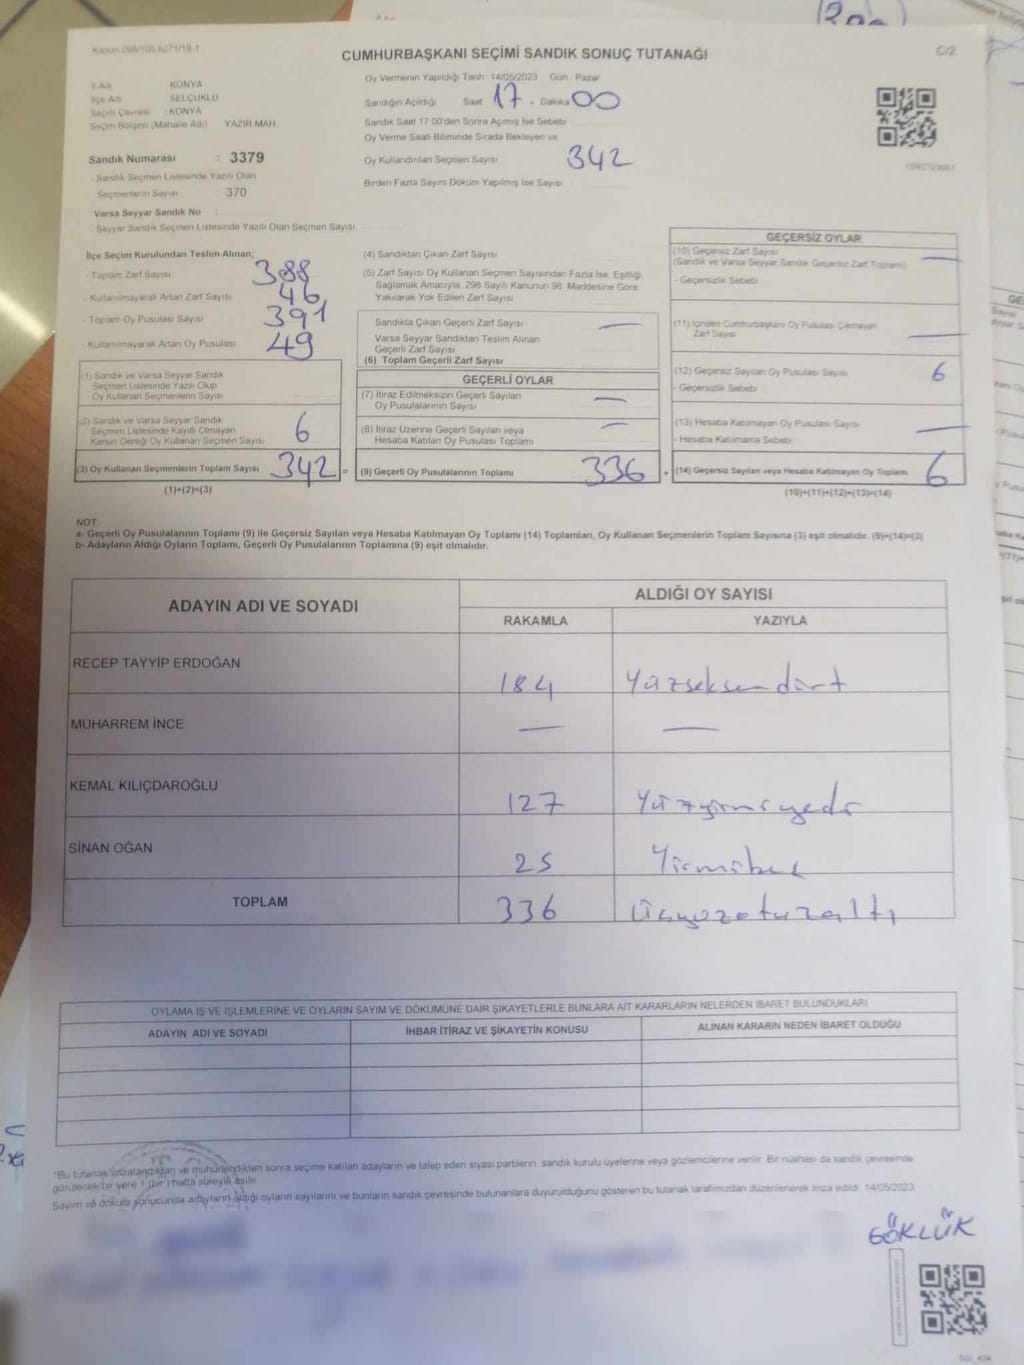 Kanun 298/105,6271/18-1
C/2
CUMHURBAŞKANI SEÇİMİ SANDIK SONUÇ TUTANAĞI
İl Adı KONYA
İlçe Adı SELÇUKLU
Seçim Çevresi : KONYA
Seçim Bölgesi (Mahalle Adı) YAZIR MAH
Sandık Numarası : 3379
- Sandık Seçmen Listesinde Yazılı Olan
Seçmenlerin Sayısı 370
Varsa Seyyar Sandık No :
- Seyyar Sandık Seçmen Listesinde Yazılı Olan Seçmen Sayısı
Oy Vermenin Yapıldığı Tarih : 14/05/2023 Gün : Pazar
Sandığın Açıldığı Saat 17 - Dakika 00
Sandık Saat 17:00'den Sonra Açımış İse Sebebi
Oy Verme Saati Bitiminde Sırada Bekleyen ve
Oy Kullandırılan Seçmen Sayısı 342
Birden Fazla Sayım Döküm Yapılmış İse Sayısı
İlçe Seçim Kurulundan Teslim Alınan;
- Toplam Zarf Sayısı 388
- Kullanılmayarak Artan Zarf Sayısı 46
- Toplam Oy Pusulası Sayısı 391
- Kullanılmayarak Artan Oy Pusulası 49
(1) Sandık ve Varsa Seyyar Sandık
Seçmen Listesinde Yazılı Olup
Oy Kullanan Seçmenlerin Sayısı
(2) Sandık ve Varsa Seyyar Sandık
Seçmen Listesinde Kayıtlı Olmayan
Kanun Gereği Oy Kullanan Seçmen Sayısı 6
(3) Oy Kullanan Seçmenlerin Toplam Sayısı 342 =
(1)+(2)=(3)
(4) Sandıktan Çıkan Zarf Sayısı
(5) Zarf Sayısı Oy Kullanan Seçmen Sayısından Fazla İse, Eşitliği
Sağlamak Amacıyla, 298 Sayılı Kanunun 98. Maddesine Göre
Yakılarak Yok Edilen Zarf Sayısı
Sandıkta Çıkan Geçerli Zarf Sayısı —
Varsa Seyyar Sandıktan Teslim Alınan
Geçerli Zarf Sayısı
(6) Toplam Geçerli Zarf Sayısı
GEÇERLİ OYLAR
(7) İtiraz Edilmeksizin Geçerli Sayılan
Oy Pusulalarının Sayısı —
(8) İtiraz Üzerine Geçerli Sayılan veya
Hesaba Katılan Oy Pusulası Toplamı —
(9) Geçerli Oy Pusulalarının Toplamı 336 +
GEÇERSİZ OYLAR
(10) Geçersiz Zarf Sayısı —
(Sandık ve Varsa Seyyar Sandık Geçersiz Zarf Toplamı)
- Geçersizlik Sebebi
(11) İçinden Cumhurbaşkanı Oy Pusulası Çıkmayan
Zarf Sayısı —
(12) Geçersiz Sayılan Oy Pusulası Sayısı 6
- Geçersizlik Sebebi
(13) Hesaba Katılmayan Oy Pusulası Sayısı —
- Hesaba Katılmama Sebebi
(14) Geçersiz Sayılan veya Hesaba Katılmayan Oy Toplamı 6
(10)+(11)+(12)+(13)=(14)
NOT:
a- Geçerli Oy Pusulalarının Toplamı (9) ile Geçersiz Sayılan veya Hesaba Katılmayan Oy Toplamı (14) Toplamları, Oy Kullanan Seçmenlerin Toplam Sayısına (3) eşit olmalıdır. (9)+(14)=(3)
b- Adayların Aldığı Oyların Toplamı, Geçerli Oy Pusulalarının Toplamına (9) eşit olmalıdır.
ADAYIN ADI VE SOYADI
ALDIĞI OY SAYISI
RAKAMLA YAZIYLA
RECEP TAYYİP ERDOĞAN 184 Yüzseksendört
MUHARREM İNCE — —
KEMAL KILIÇDAROĞLU 127 Yüzyirmiyedi
SİNAN OĞAN 25 Yirmibeş
TOPLAM 336 Üçyüzotuzaltı
OYLAMA İŞ VE İŞLEMLERİNE VE OYLARIN SAYIM VE DÖKÜMÜNE DAİR ŞİKAYETLERLE BUNLARA AİT KARARLARIN NELERDEN İBARET BULUNDUKLARI
ADAYIN ADI VE SOYADI İHBAR İTİRAZ VE ŞİKAYETİN KONUSU ALINAN KARARIN NEDEN İBARET OLDUĞU
*Bu tutanak imzalandıktan ve mühürlendikten sonra seçime katılan adayların ve talep eden siyasi partilerin sandık kurulu üyelerine veya gözlemcilerine verilir. Bir nüshası da sandık çevresinde
görülecek bir yere 1 (bir) hafta süreyle asılır.
Sayım ve döküm sonucunda adayların aldığı oyların sayılarını ve bunların sandık çevresinde bulunanlara duyurulduğunu gösteren bu tutanak tarafımızdan düzenlenerek imza edildi. 14/05/2023
GÖKLÜK